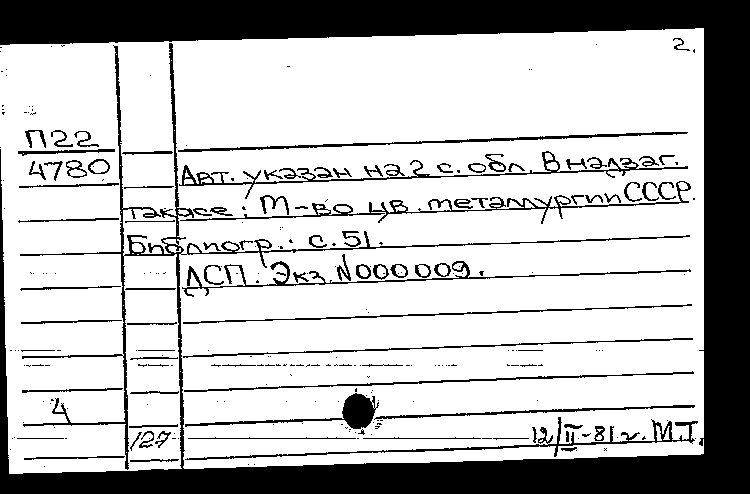 2.
П22
4780
Авт. указан на 2 с. обл. В надзаг.
также: М-во цв. металлургии СССР.
Библиогр.: с. 51.
ДСП. Экз. N000009.
4
127
12/II-81 г. М.Т.